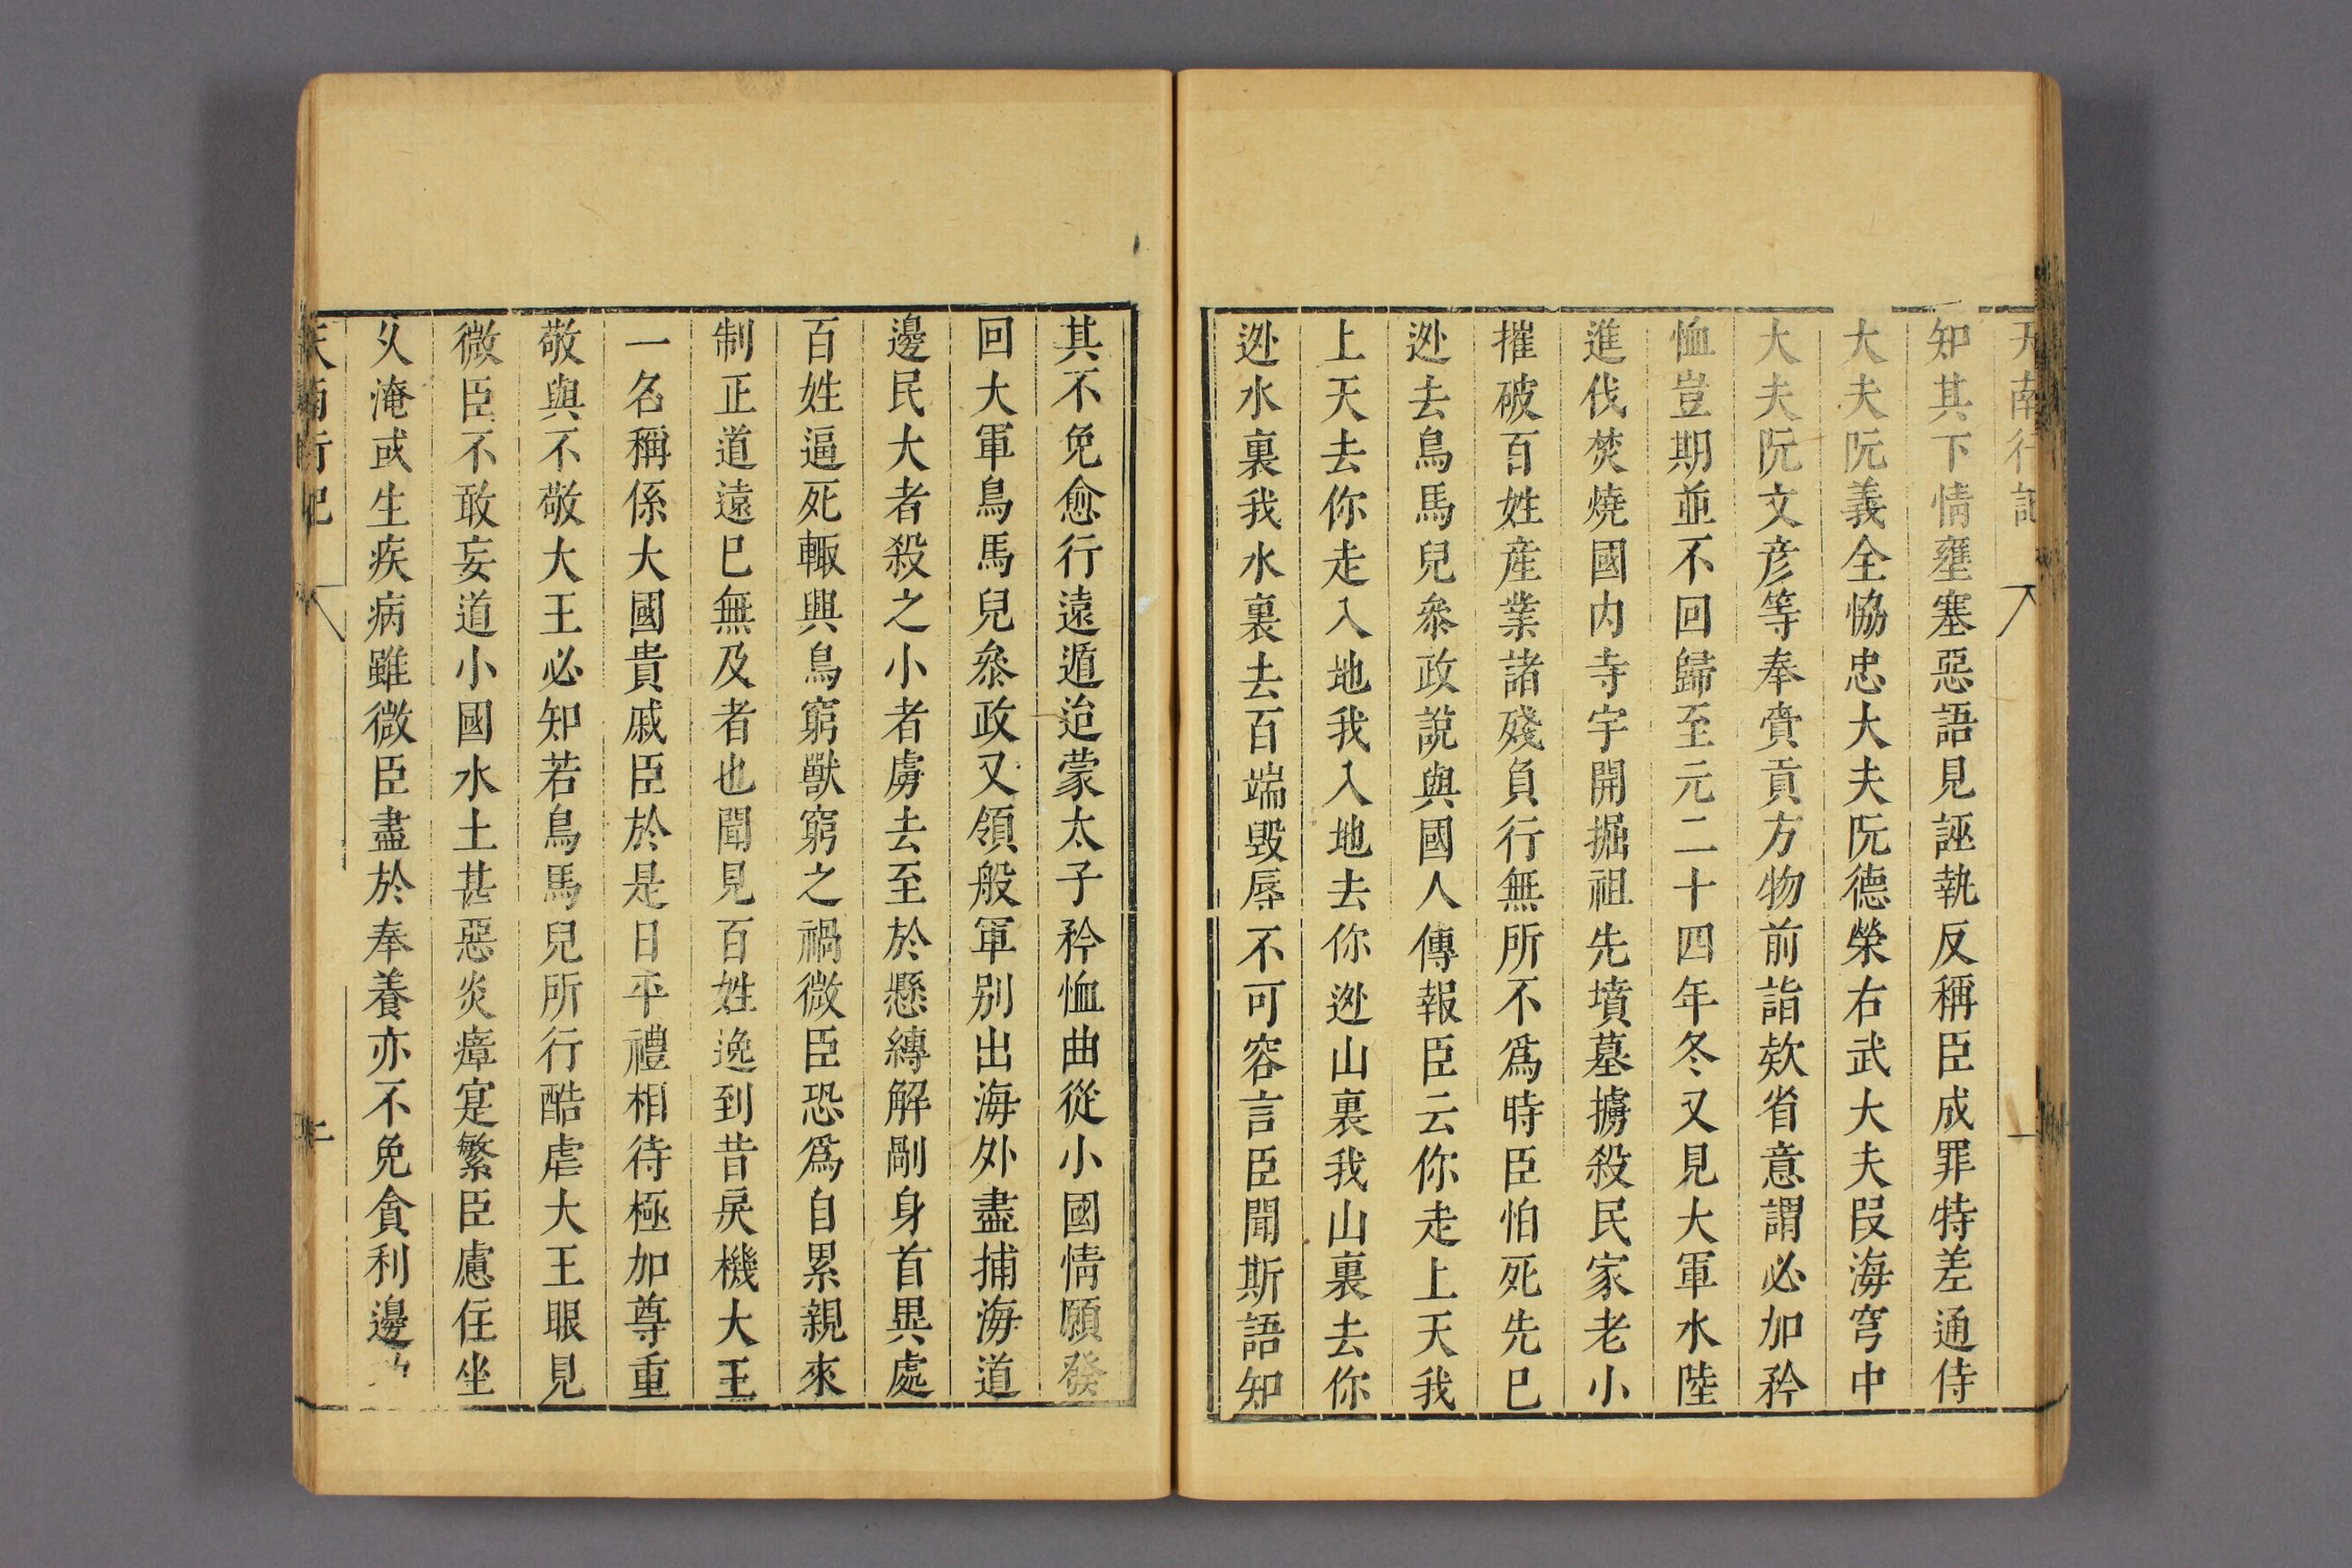 天南行記
知其下情壅塞惡語見誣執反稱臣成罪特差通侍
大夫阮義全恊忠大夫阮德榮右武大夫段海穹中
大夫阮文彦等奉賫貢方物前詣欵省意謂必加矜
恤豈期並不回歸至元二十四年冬又見大軍水陸
進伐焚燒國内寺宇開掘祖先墳墓擄殺民家老小
摧破百姓産業諸殘負行無所不爲時臣怕死先巳
迯去烏馬兒叅政説與國人傳報臣云你走上天我
上天去你走入地我入地去你迯山裏我山裏去你
迯水裏我水裏去百端毁辱不可容言臣聞斯語知
其不免愈行遠遁迨蒙太子矜恤曲從小國情願發
回大軍烏馬兒叅政又領般軍别出海外盡捕海道
邊民大者殺之小者虜去至於懸縳解剮身首異處
百姓逼死輙興鳥窮獸窮之禍微臣恐爲自累親來
制正道遠巳無及者也聞見百姓逸到昔戾機大王
一名稱係大國貴戚臣於是日平禮相待極加尊重
敬與不敬大王必知若烏馬兒所行酷虐大王眼見
微臣不敢妄道小國水土甚惡炎瘴寔繁臣慮住坐
乆淹或生疾病雖微臣盡於奉養亦不免貪利邊
天南行記